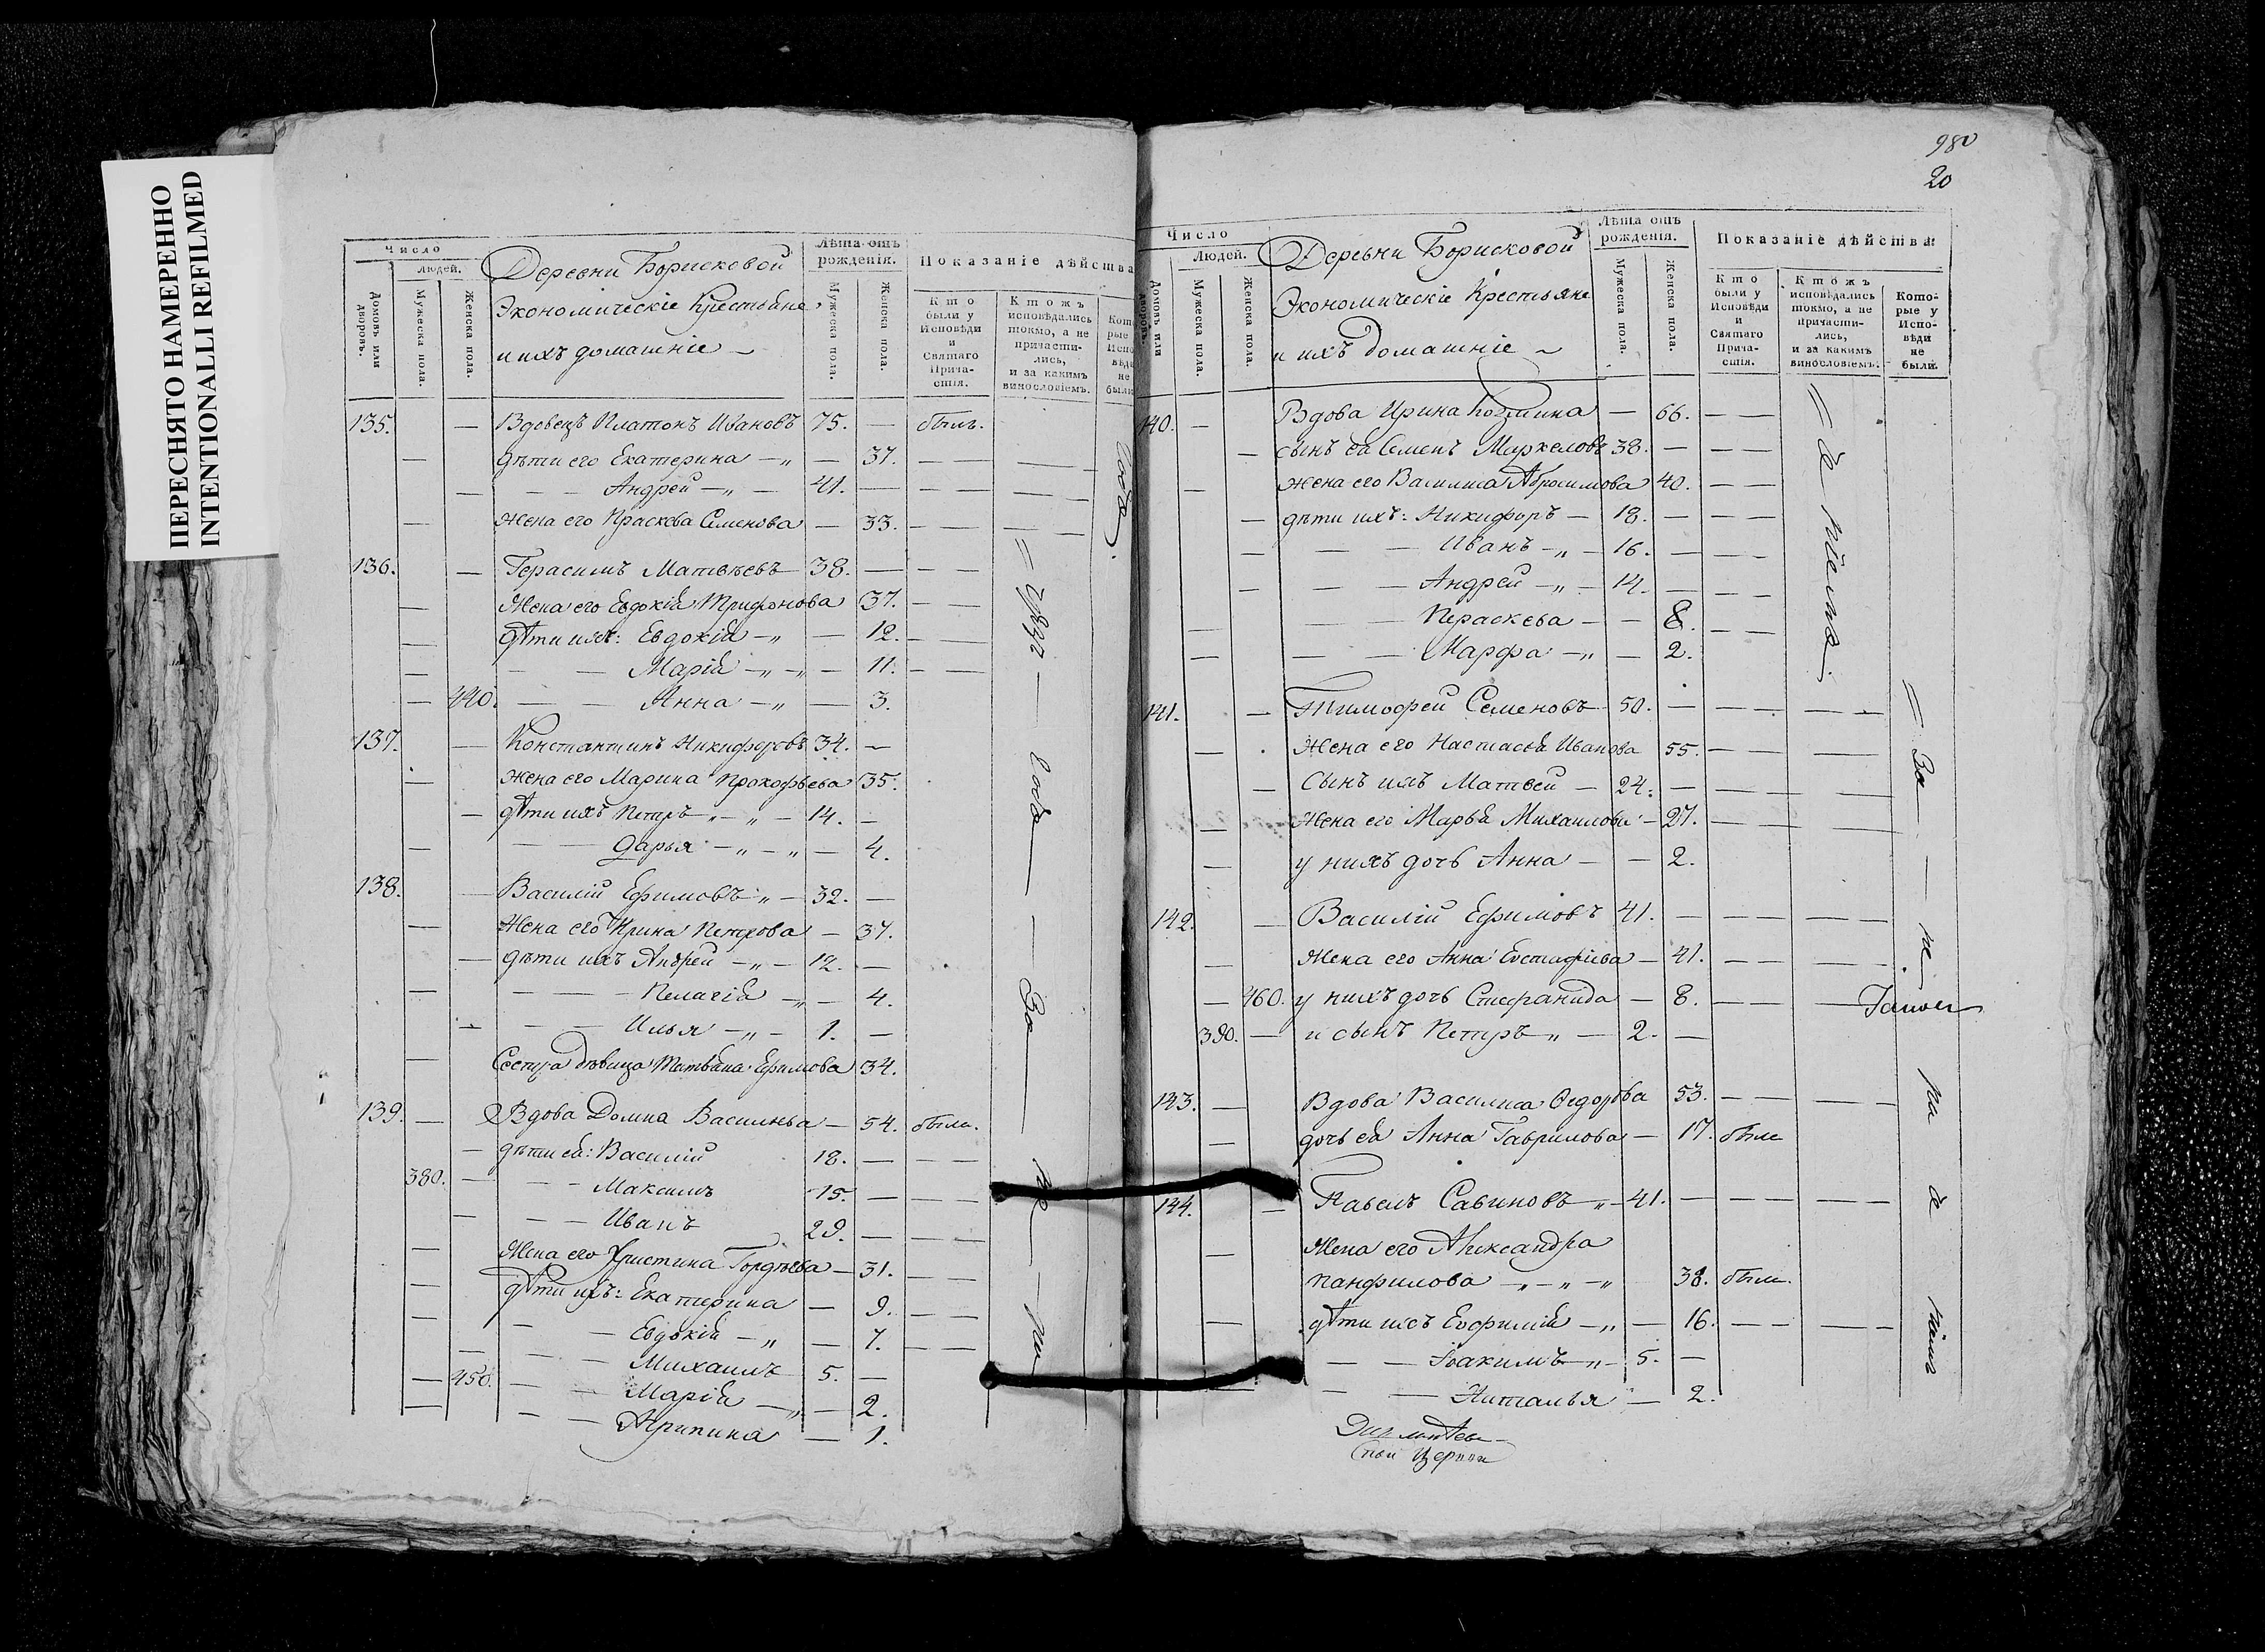 ПЕРЕСНЯТО НАМЕРЕННО
INTENTIONALLI REFILMED
Число
Людей.
Домовъ или дворовъ.
Мужеска пола.
Женска пола.
Деревни Борисковой
Экономическіе Крестьяне
и ихъ домашніе
Лѣта отъ рожденія.
Мужеска пола.
Женска пола.
Показаніе дѣйства
Кто были у Исповѣди и Святаго Причастія.
Ктожъ исповѣдались токмо, а не причастились, и за какимъ винословіемъ.
135. — Вдовецъ Платонъ Ивановъ 75. — былъ.
— дѣти его Екатерина — „ — 37. — — —
— — — Андрей — „ — 41. — — — —
— Жена его Праскева Семенова — 33. — — —
136. — Герасимъ Матвѣевъ 38. — — —
— Жена его Евдокія Трифонова 37. —
— Дѣти ихъ: Евдокія — „ — 12. —
— — — Марія — „ — „ — 11. — —
— 440. — — Анна — „ — 3.
137. — Константинъ Никифоровъ 34. —
— Жена его Марина Прокофьева 35.
— дѣти ихъ Петръ „ — „ — 14. —
— — — Дарья — „ — „ — 4.
138. — Василій Ефимовъ „ — 32. —
— Жена его Ирина Петрова — 37.
— дѣти ихъ Андрей — „ — 12. —
— — — — Пелагія — „ — 4.
— — — Илья — „ — 1. —
— Сестра дѣвица Татьяна Ефимова 34.
139. — Вдова Домна Васильева — 54. была.
— дѣти ея: Василій 18. — — —
380. — — — Максимъ 15. — — —
— — — Иванъ 29. — — —
— Жена его Христина Гордѣева — 31. — —
— Дѣти ихъ: Екатерина — 9. — —
— — — Евдокія — „ — 7. — —
— — — Михаилъ 5. —
— 450. — — Марія — „ — 2.
— — — Агрипина — 1.
980
20
Число
Людей.
Домовъ или дворовъ.
Мужеска пола.
Женска пола.
Деревни Борисковой
Экономическіе Крестьяне
и ихъ домашніе
Лѣта отъ рожденія.
Мужеска пола.
Женска пола.
Показаніе дѣйства
Кто были у Исповѣди и Святаго Причастія.
Ктожъ исповѣдались токмо, а не причастились, и за какимъ винословіемъ.
Которые у Исповѣди не были.
140. — Вдова Ирина Козмина — 66. — —
— сынъ ея Семенъ Маркеловъ 38. — — —
— Жена его Василиса Абросимова 40. — —
— дѣти ихъ: Никифоръ — 18. — — —
— — — Иванъ — „ — 16. — — —
— — — Андрей — „ — 14. — — —
— — — Праскева — — 8. — —
— — — Марфа — „ — 2.
141. — Тимофей Семеновъ 50. — — — — —
— Жена его Настасья Иванова 55. — — —
— Сынъ ихъ Матвей — 24. — — — —
— Жена его Марья Михаилова — 27. — — —
— у нихъ дочь Анна — — 2.
142. — Василій Ефимовъ 41. — — — — —
— Жена его Анна Евстафіева — 41. — — — —
— 460. у нихъ дочь Стефанида — 8. — — —
390. — и сынъ Петръ „ — 2. —
143. — Вдова Василиса Ѳедорова 53. — — — —
— дочь ея Анна Гаврилова — 17. были
144. — Павелъ Савиновъ „ — 41. — — — — —
— Жена его Александра
Панфилова — „ — „ — „ 38. были.
— дѣти ихъ Евфимія — „ — 16. — — — —
— — Іоакимъ — „ — 5. —
— — — Наталья — 2.
Церкви